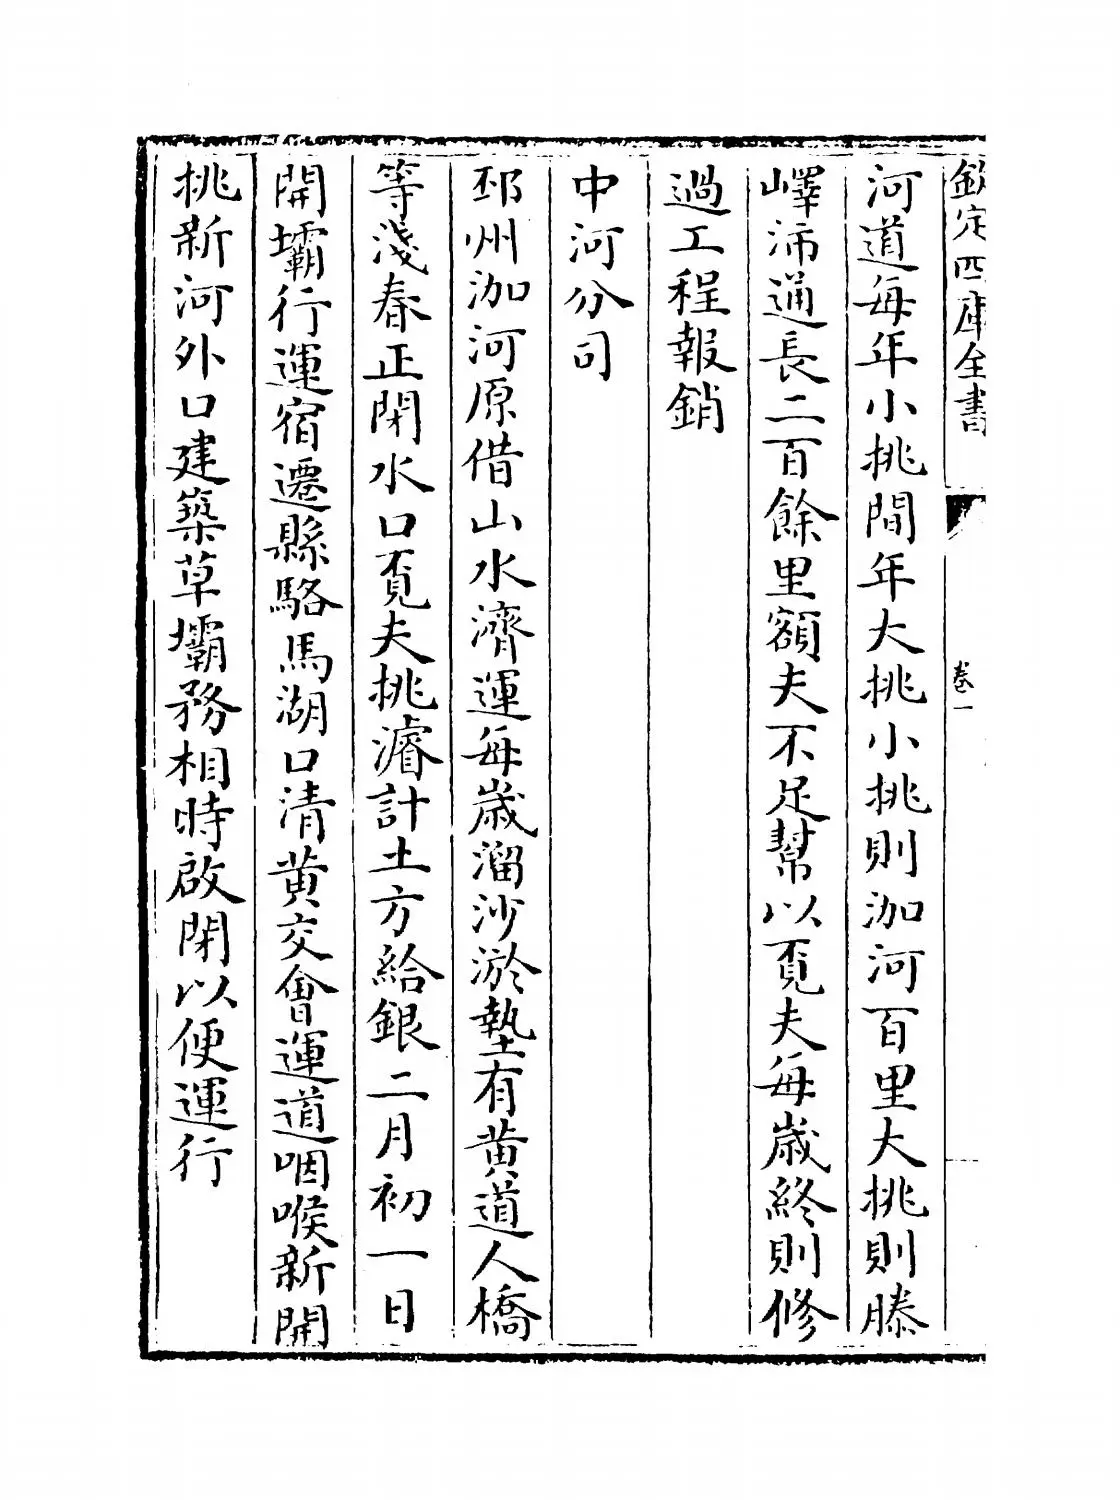 欽定四庫全書
卷一
河道每年小挑間年大挑小挑則泇河百里大挑則滕
嶧沛通長二百餘里額夫不足幫以覔夫每歲終則修
過工程報銷
中河分司
邳州泇河原借山水濟運每歲溜沙淤墊有黄道人橋
等淺春正閉水口覔夫挑濬計土方給銀二月初一日
開壩行運宿遷縣駱馬湖口清黄交會運道咽喉新開
挑新河外口建築草壩務相時啟閉以便運行